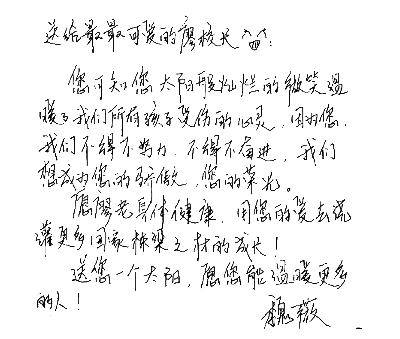 送给最最可爱的廖校长:
您可知您太阳般灿烂的微笑温
暖了我们所有孩子受伤的心灵,因为您,
我们不得不努力,不得不奋进,我们
想成为您的骄傲,您的荣光。
愿廖老身体健康,用您的爱去浇
灌更多国家栋梁之材的成长!
送您一个太阳,愿您能温暖更多
的人!
魏薇